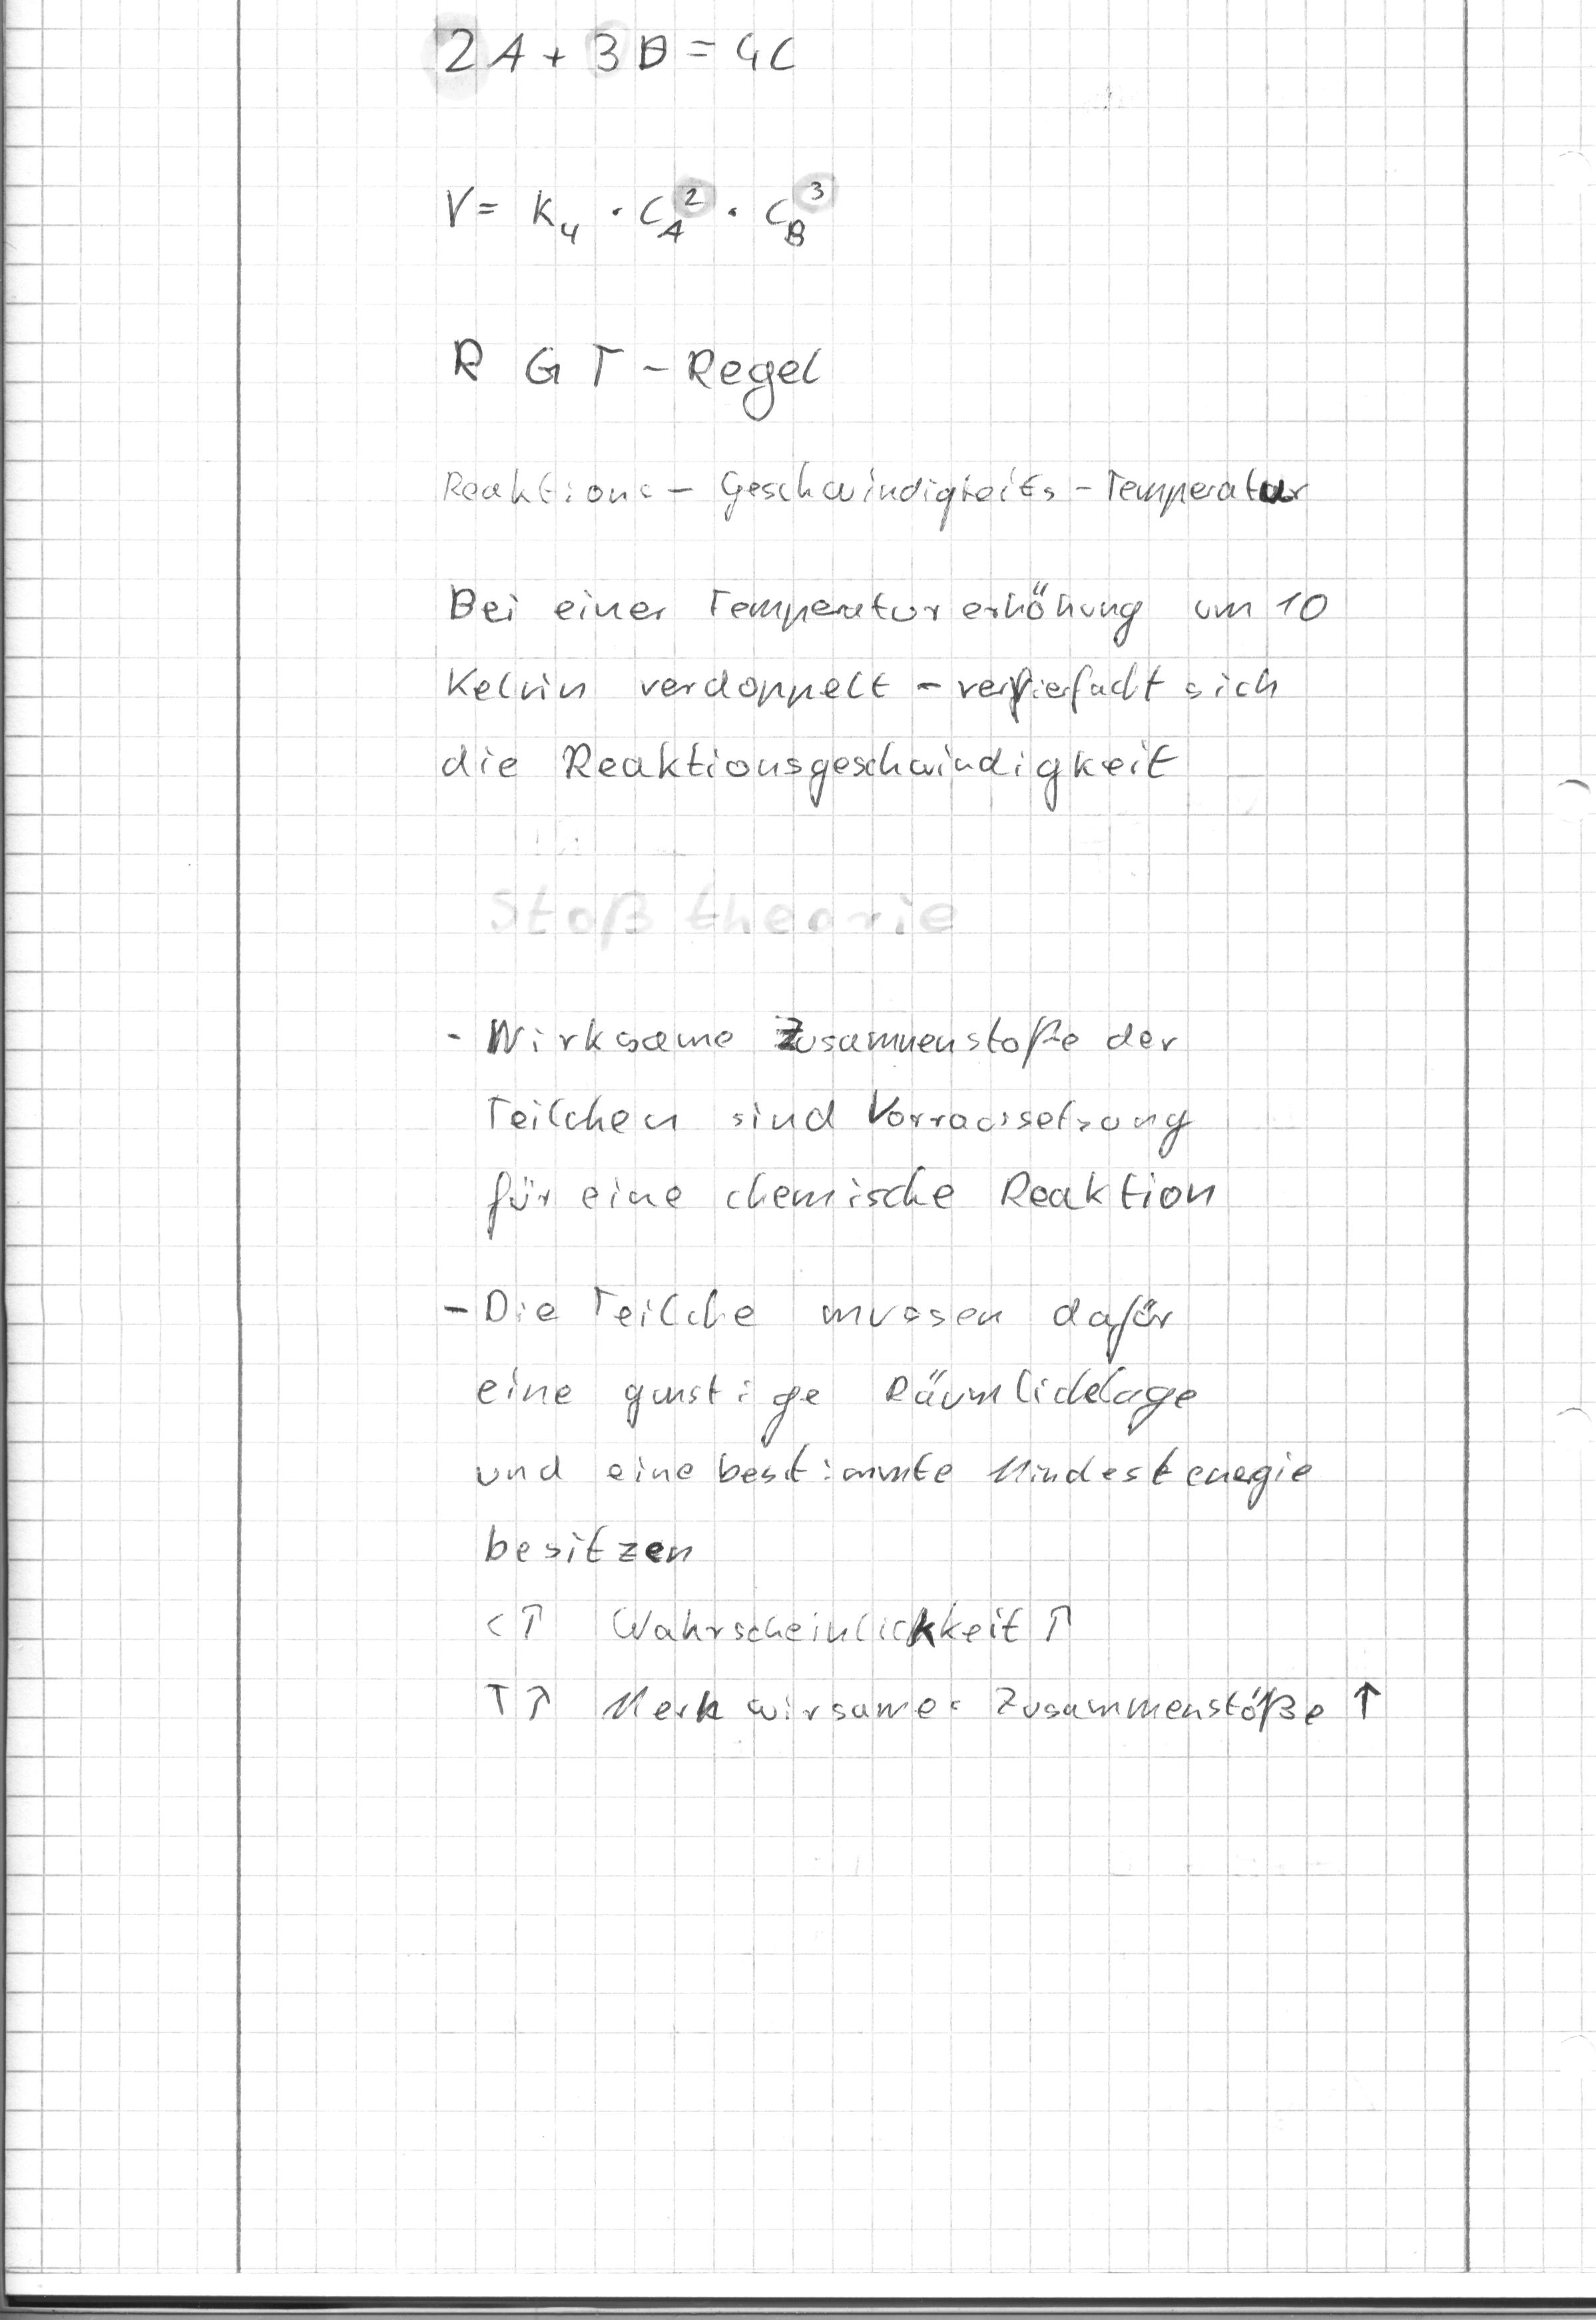 2A + 3B = 4C
V = k₄ · c_A² · c_B³
R G T - Regel
Reaktions - Geschwindigkeits - Temperatur
Bei einer Temperaturerhöhung um 10
Kelvin verdoppelt - vervierfacht sich
die Reaktionsgeschwindigkeit
Stoßtheorie
- Wirksame Zusammenstoße der
Teilchen sind Vorraussetzung
für eine chemische Reaktion
- Die Teilche mussen dafür
eine gunstige Räumlichlage
und eine bestimmte Mindestenergie
besitzen
c↑ Wahrscheinlichkkeit ↑
T↑ Merh wirsame Zusammenstöße ↑